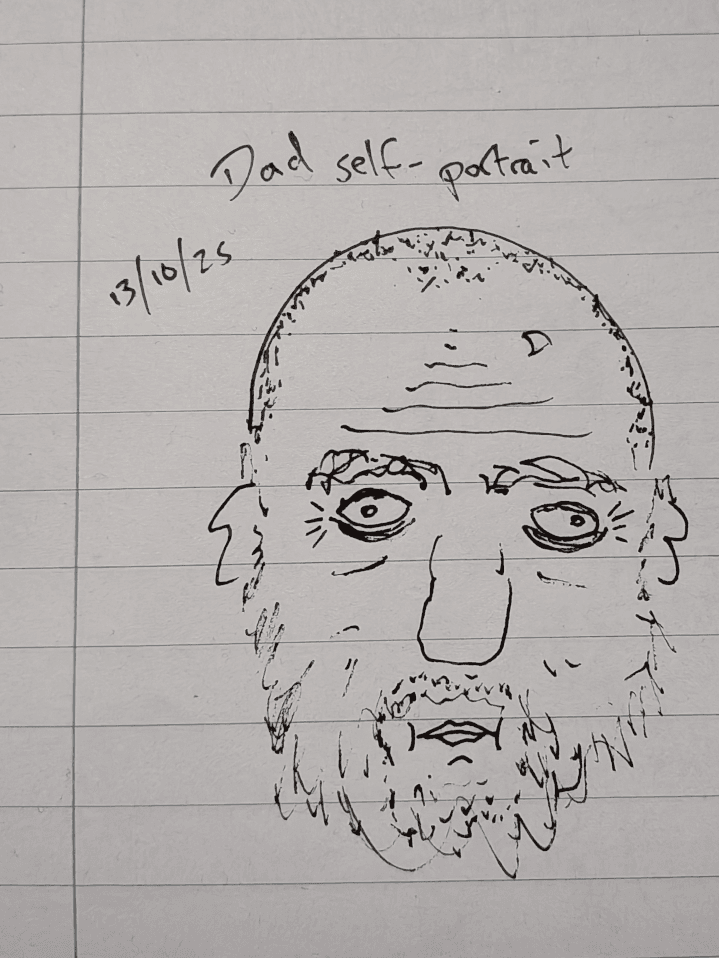 Dad self-portrait
13/10/25